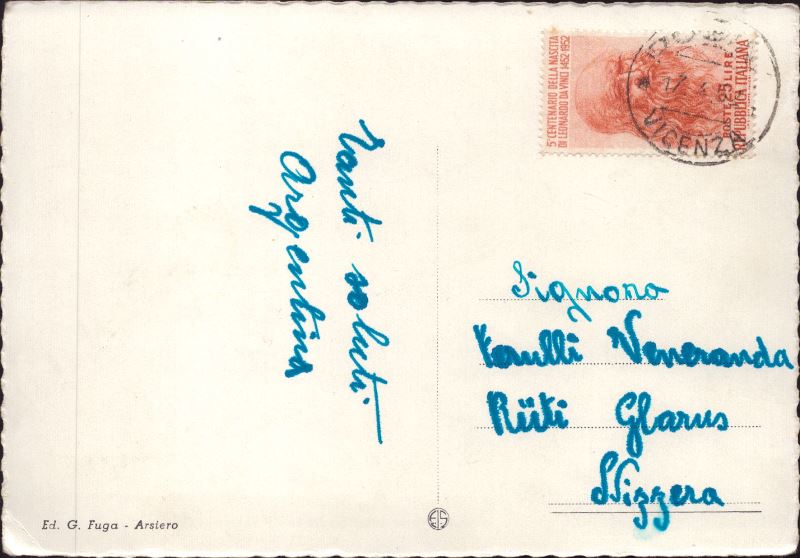 5° CENTENARIO DELLA NASCITA
DI LEONARDO DA VINCI 1452-1952
POSTE LIRE 25
REPUBBLICA ITALIANA
VICENZA
Tanti saluti
Argentina
Signora
Veneranda
Rüti Glarus
Svizzera
Ed. G. Fuga - Arsiero